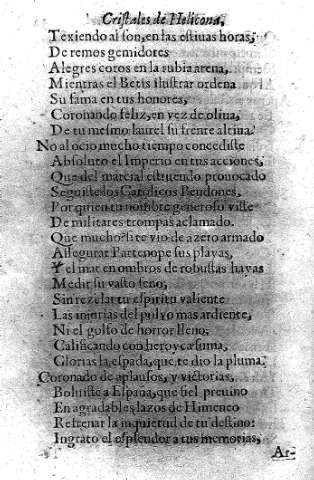 Cristales de Helicona,
Texiendo al son, en las estiuas horas,
De remos gemidores
Alegres coros en la rubia arena,
Mientras el Betis ilustrar ordena
Su fama en tus honores,
Coronando feliz, en vez de oliua,
De tu mesmo laurel su frente altiua.
No al ocio mucho tiempo concediste
Absoluto el Imperio en tus acciones,
Que del marcial estruendo prouocado
Seguiste los Catolicos Pendones,
Por quien tu nombre generoso viste
De militares trompas aclamado.
Que mucho? si te vio de azero armado
Assegurar Partenope sus playas,
Y el mar en ombros de robustas hayas
Medir su vasto seno,
Sin rezelar tu espiritu valiente
Las injurias del poluo mas ardiente,
Ni el golfo de horror lleno,
Calificando con heroyca suma,
Glorias la espada, que te dio la pluma.
Coronado de aplausos, y victorias,
Boluiste a España, que fiel preuino
En agradables lazos de Himeneo
Refrenar la inquietud de tu destino:
Ingrato el esplendor a tus memorias,
Ar-